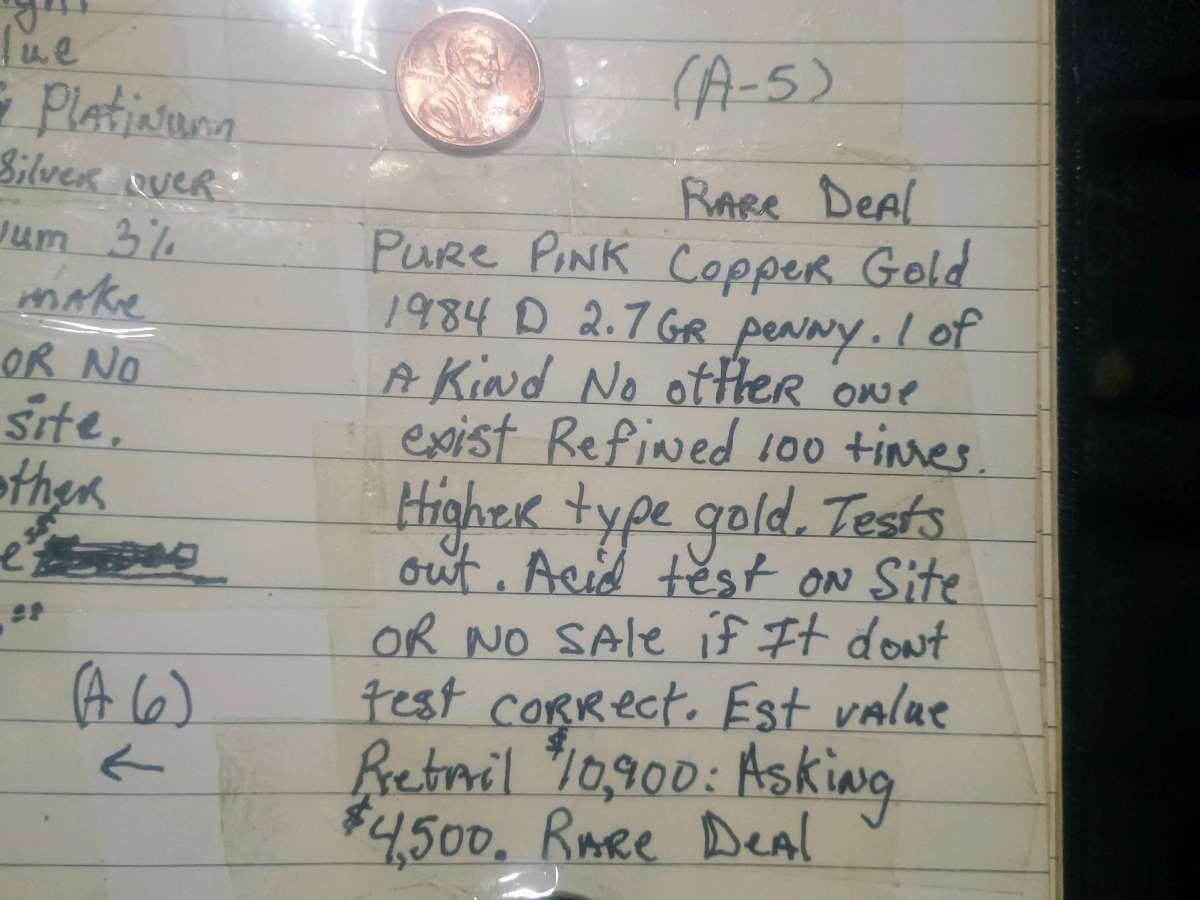 lue
Platinum
Silver over
um 3%
make
OR NO
site.
other
e $
(A 6)
←
(A-5)
RARE DEAL
PURE PINK COPPER Gold
1984 D 2.7 GR PENNY. 1 of
A Kind No other one
exist Refined 100 times.
Higher type gold. Tests
out. Acid test ON Site
OR NO SALE if It dont
test CORRect. Est vAlue
Retail $10,900: Asking
$4,500. RARE DEAL